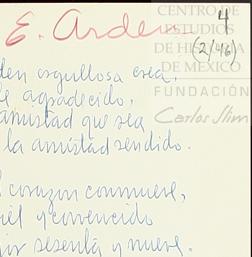 E. Arde
4
(2/46)
CENTRO DE
ESTUDIOS
DE HISTORIA
DE MÉXICO
FUNDACIÓN
Carlos Slim
den orgullosa
agradecido,
amistad que sea
la amistad
corazon conmueve,
y convencido
sesenta y nueve.